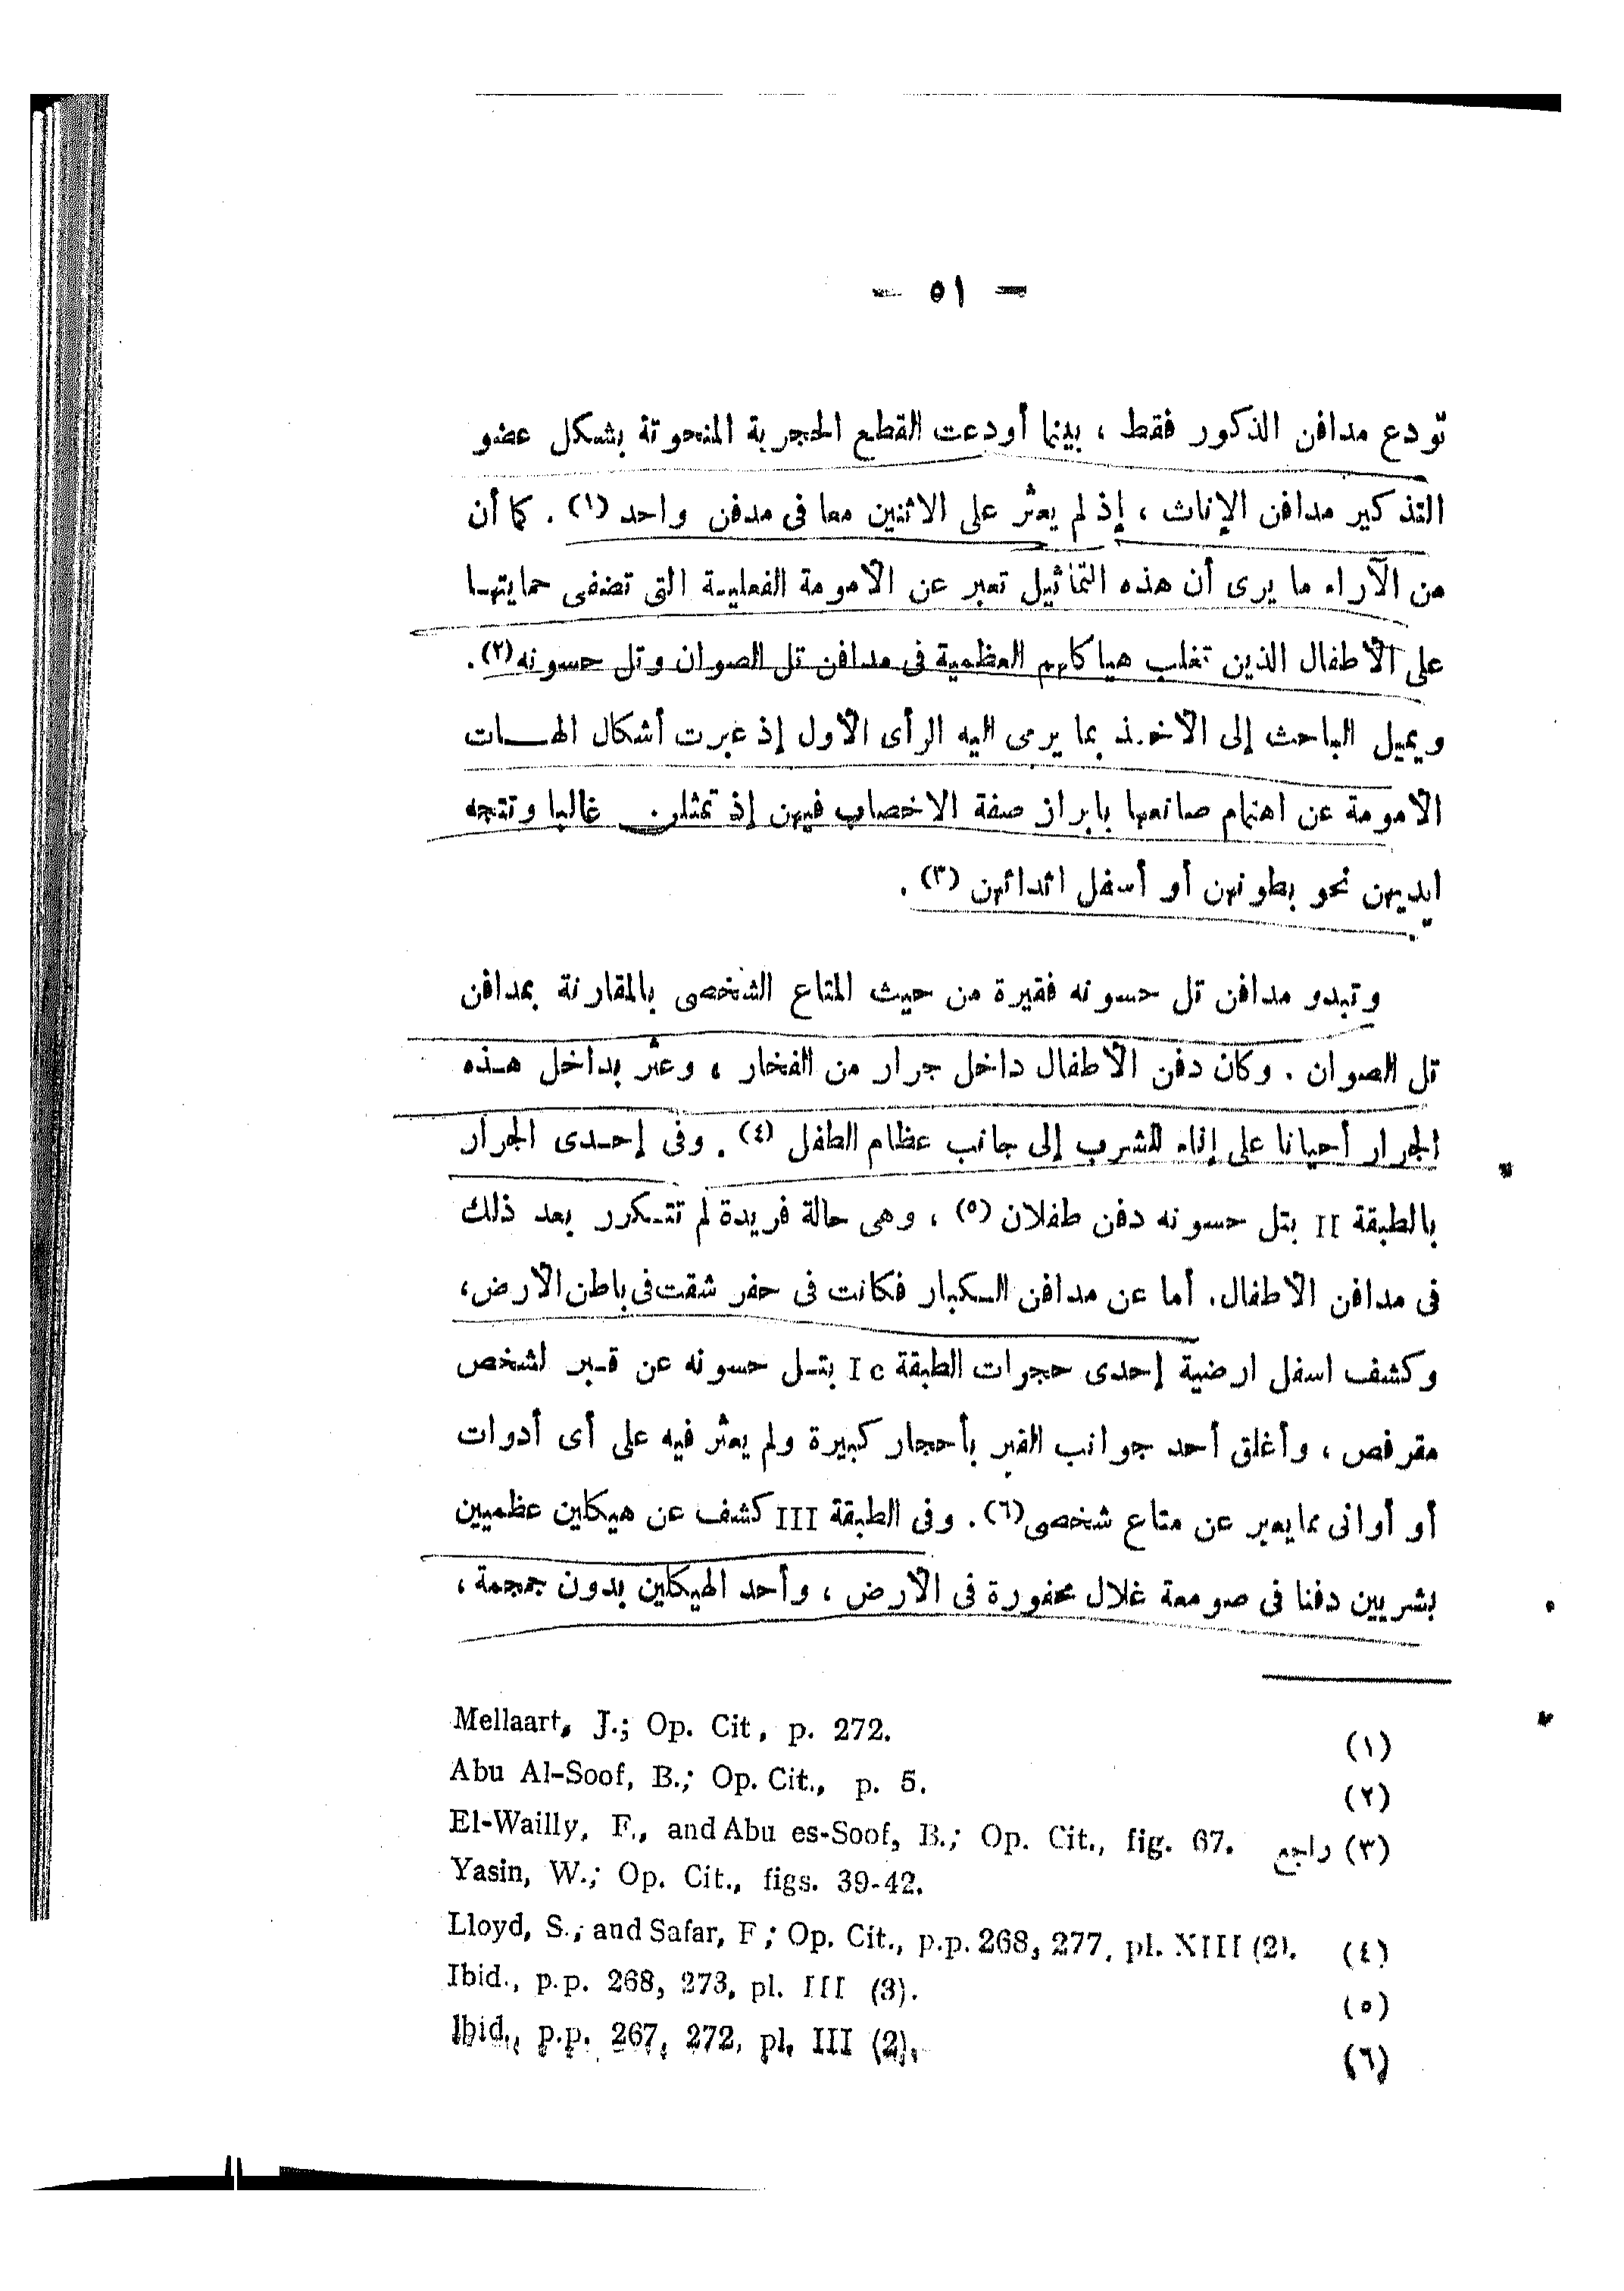 — ٥١ —
تودع مدافن الذكور فقط ، بينما أودعت القطع الحجرية المنحوتة بشكل عضو
التذكير مدافن الإناث ، إذ لم يعثر على الاثنين معا فى مدفن واحد (١) . كما أن
من الآراء ما يرى أن هذه التماثيل تعبر عن الأمومة الفعليـة التى تضفى حمايتهـا
على الأطفال الذين تغلب هياكلهم العظمية فى مدافن تل الصوان وتل حسونه (٢) .
ويميل الباحث إلى الأخـذ بما يرمى اليه الرأى الأول إذ عبرت أشكال الهــات
الأمومة عن اهتمام صانعها بابراز صفة الاخصاب فيهن إذ تمثلن غالبا وتتجه
ايديهن نحو بطونهن أو أسفل اثدائهن (٣) .
وتبدو مدافن تل حسونه فقيرة من حيث المتاع الشخصى بالمقارنة بمدافن
تل الصوان . وكان دفن الأطفال داخل جرار من الفخار ، وعثر بداخل هـذه
الجرار أحيانا على إناء للشرب إلى جانب عظام الطفل (٤) . وفى إحـدى الجرار
بالطبقة II بتل حسونه دفن طفلان (٥) ، وهى حالة فريدة لم تتـكرر بعد ذلك
فى مدافن الأطفال . أما عن مدافن الـكبار فكانت فى حفر شقت فى باطن الأرض ،
وكشف اسفل ارضية إحدى حجرات الطبقة Ic بتـل حسونه عن قـبر لشخص
مقرفص ، وأغلق أحد جوانب القبر بأحجار كبيرة ولم يعثر فيه على أى أدوات
أو أوانى مما يعبر عن متاع شخصى (٦) . وفى الطبقة III كشف عن هيكلين عظميين
بشريين دفنا فى صومعة غلال محفورة فى الأرض ، وأحد الهيكلين بدون جمجمة ،
(١) Mellaart, J.; Op. Cit, p. 272.
(٢) Abu Al-Soof, B.; Op. Cit., p. 5.
(٣) راجع El-Wailly, F., and Abu es-Soof, B.; Op. Cit., fig. 67.
Yasin, W.; Op. Cit., figs. 39-42.
(٤) Lloyd, S.; and Safar, F ; Op. Cit., p.p. 268, 277, pl. XIII (2).
(٥) Ibid., p.p. 268, 273, pl. III (3).
(٦) Ibid., p.p. 267, 272, pl. III (2).